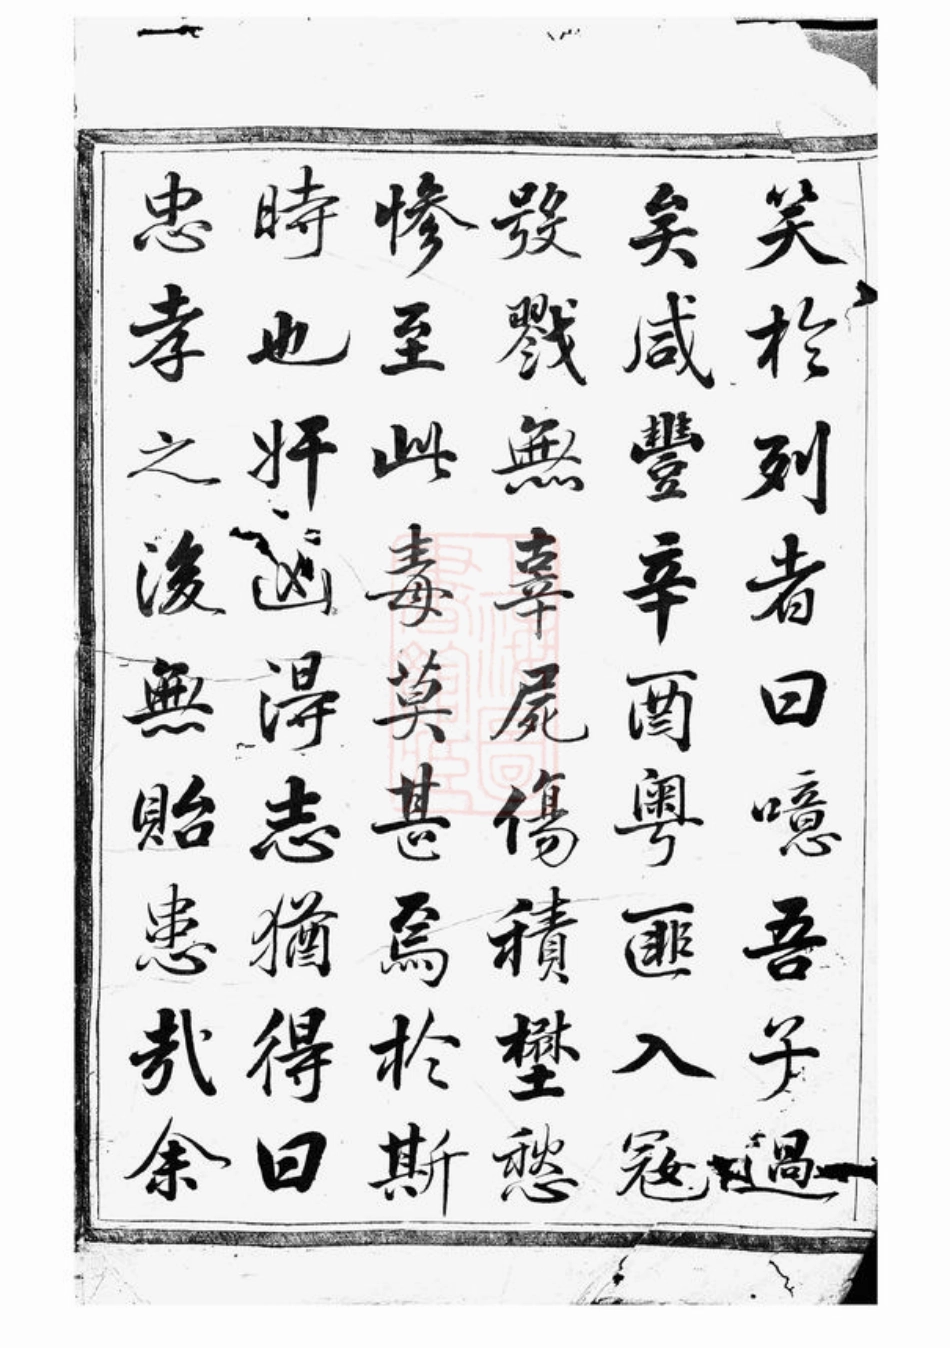 笑於列者曰噫吾子過
矣咸豐辛酉粵匪入寇
殺戮無辜屍傷積壄愁
慘至此毒莫甚焉於斯
時也奸凶淂志猶得曰
忠孝之後無貽患哉余